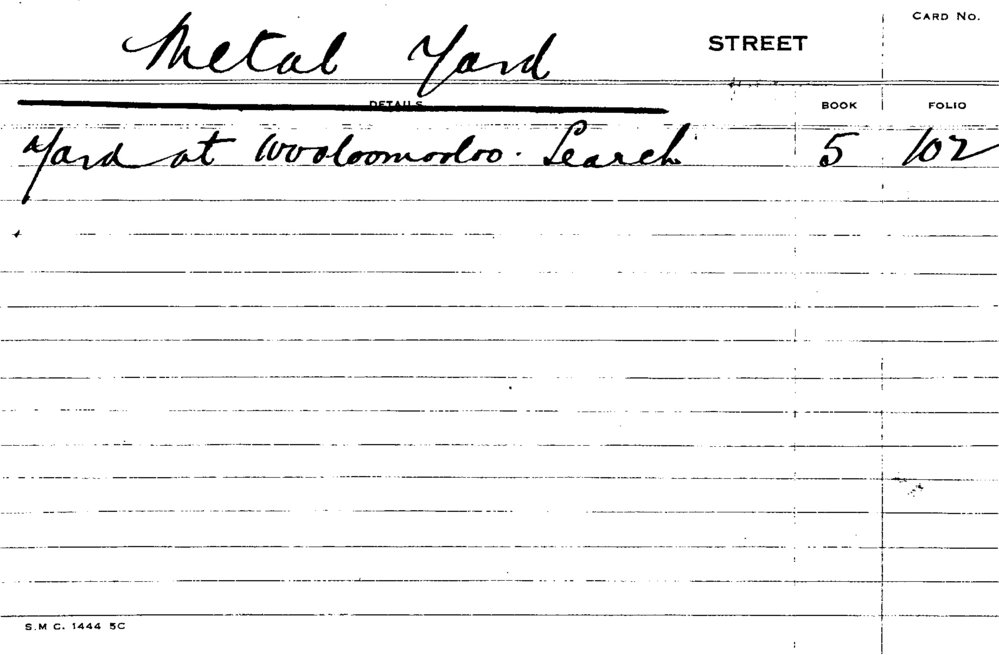 CARD NO.
Metal Yard STREET
DETAILS BOOK FOLIO
Yard at Wooloomooloo. Search 5 102
S.M C. 1444 5C